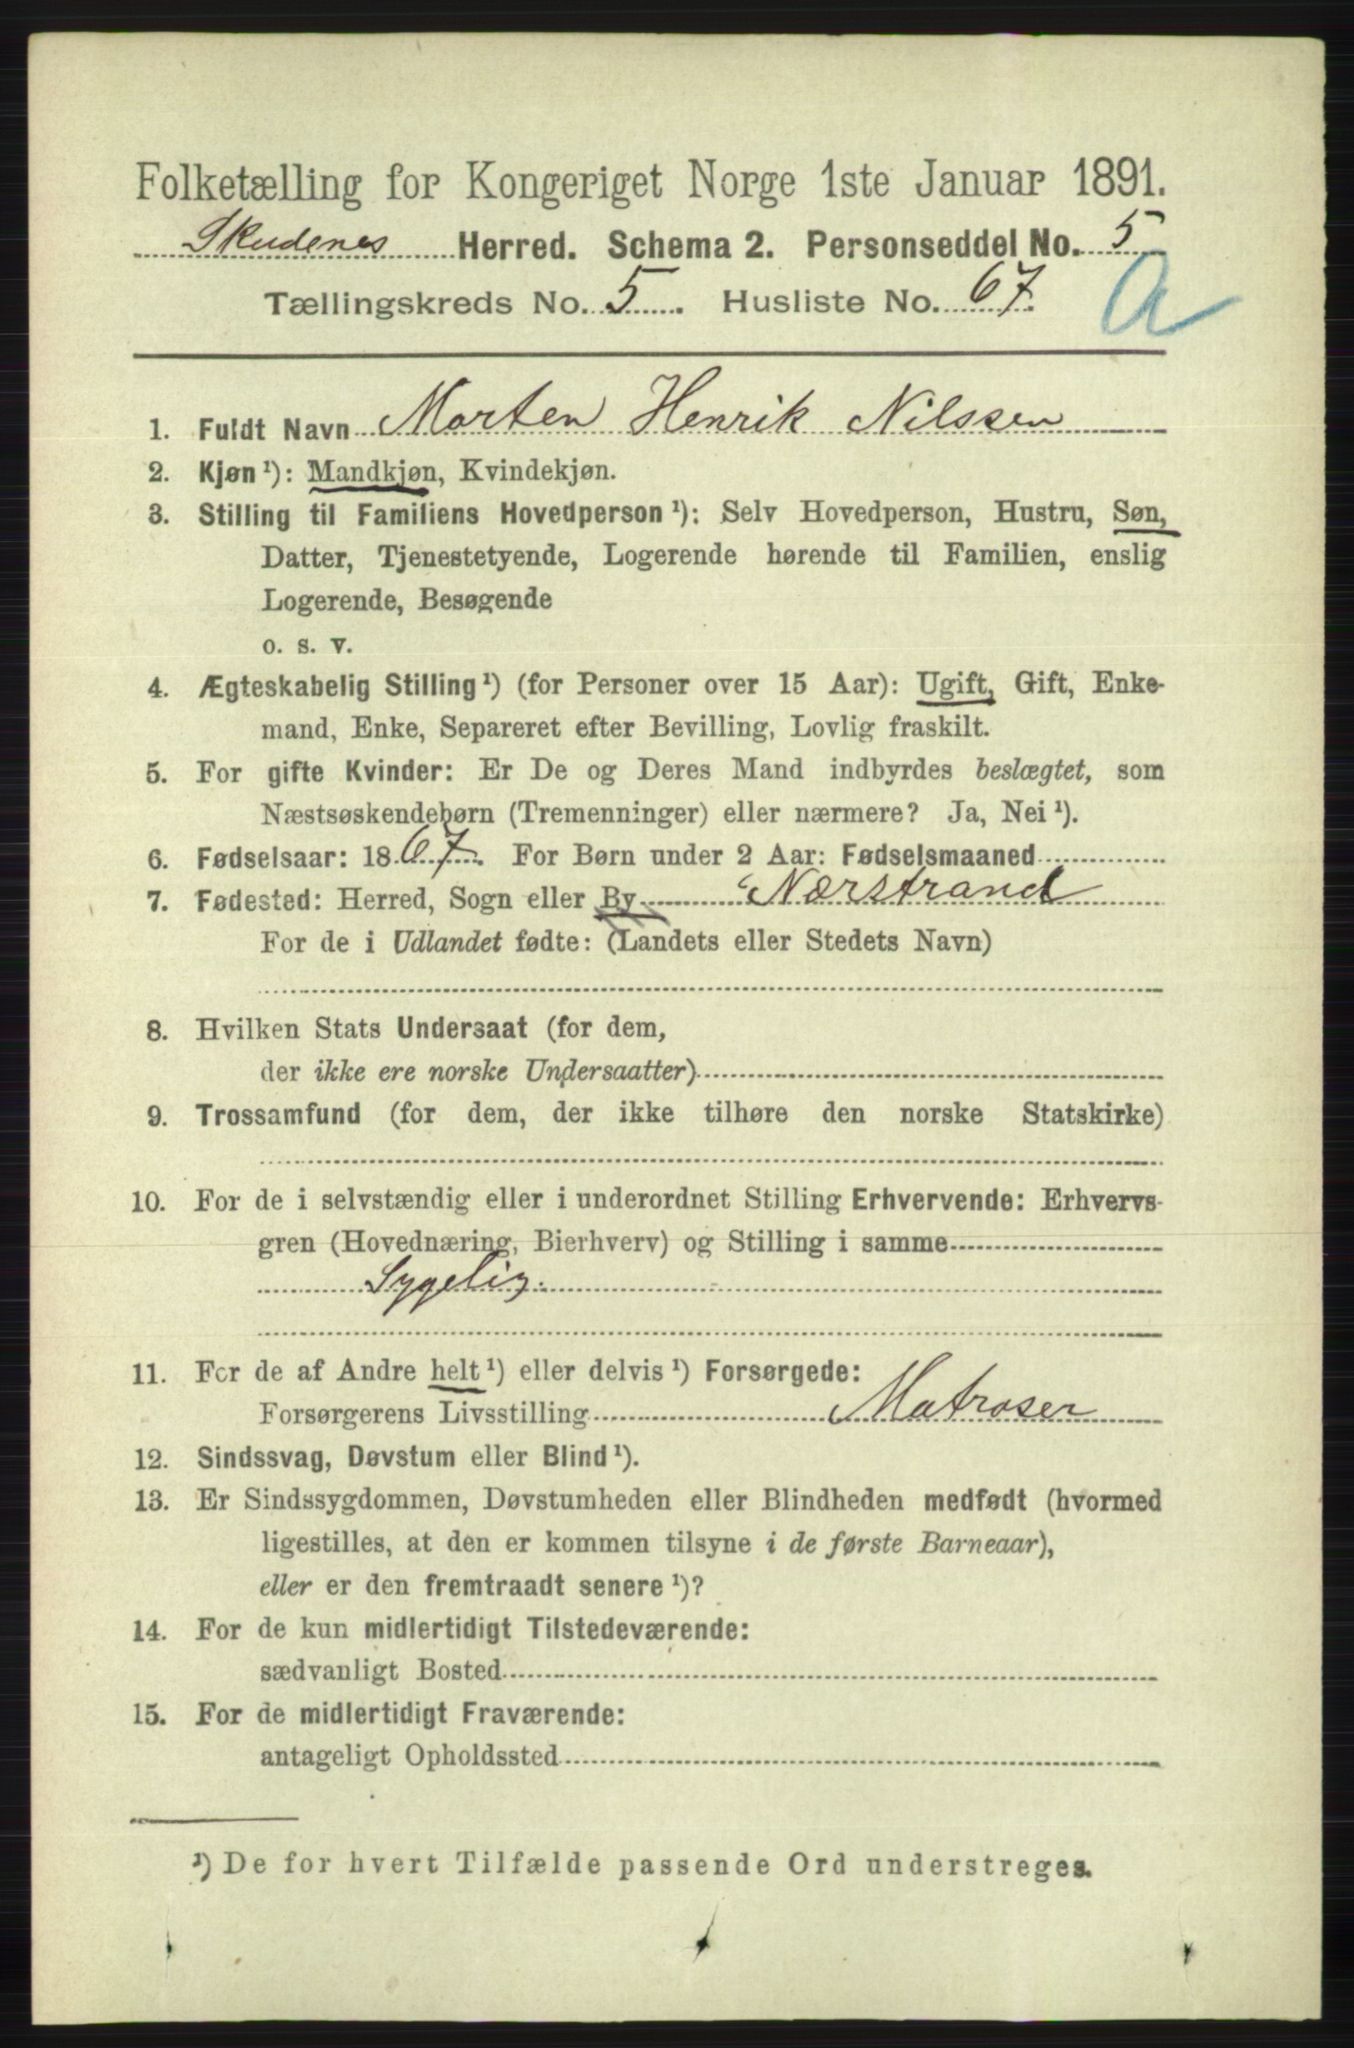 Folketælling for Kongeriget Norge 1ste Januar 1891.
Skudenes Herred. Schema 2. Personseddel No. 5
Tællingskreds No. 5. Husliste No. 67.
a
1. Fuldt Navn Morten Henrik Nilssen
2. Kjøn¹): Mandkjøn, Kvindekjøn.
3. Stilling til Familiens Hovedperson¹): Selv Hovedperson, Hustru, Søn,
Datter, Tjenestetyende, Logerende hørende til Familien, enslig
Logerende, Besøgende
o. s. v.
4. Ægteskabelig Stilling¹) (for Personer over 15 Aar): Ugift, Gift, Enke-
mand, Enke, Separeret efter Bevilling, Lovlig fraskilt.
5. For gifte Kvinder: Er De og Deres Mand indbyrdes beslægtet, som
Næstsøskendebørn (Tremenninger) eller nærmere? Ja, Nei¹).
6. Fødselsaar: 1867. For Børn under 2 Aar: Fødselsmaaned
7. Fødested: Herred, Sogn eller By Nærstrand
For de i Udlandet fødte: (Landets eller Stedets Navn)
8. Hvilken Stats Undersaat (for dem,
der ikke ere norske Undersaatter)
9. Trossamfund (for dem, der ikke tilhøre den norske Statskirke)
10. For de i selvstændig eller i underordnet Stilling Erhvervende: Erhvervs-
gren (Hovednæring, Bierhverv) og Stilling i samme
Sygelig.
11. For de af Andre helt¹) eller delvis¹) Forsørgede:
Forsørgerens Livsstilling Matroser
12. Sindssvag, Døvstum eller Blind¹).
13. Er Sindssygdommen, Døvstumheden eller Blindheden medfødt (hvormed
ligestilles, at den er kommen tilsyne i de første Barneaar),
eller er den fremtraadt senere¹)?
14. For de kun midlertidigt Tilstedeværende:
sædvanligt Bosted
15. For de midlertidigt Fraværende:
antageligt Opholdssted
¹) De for hvert Tilfælde passende Ord understreges.